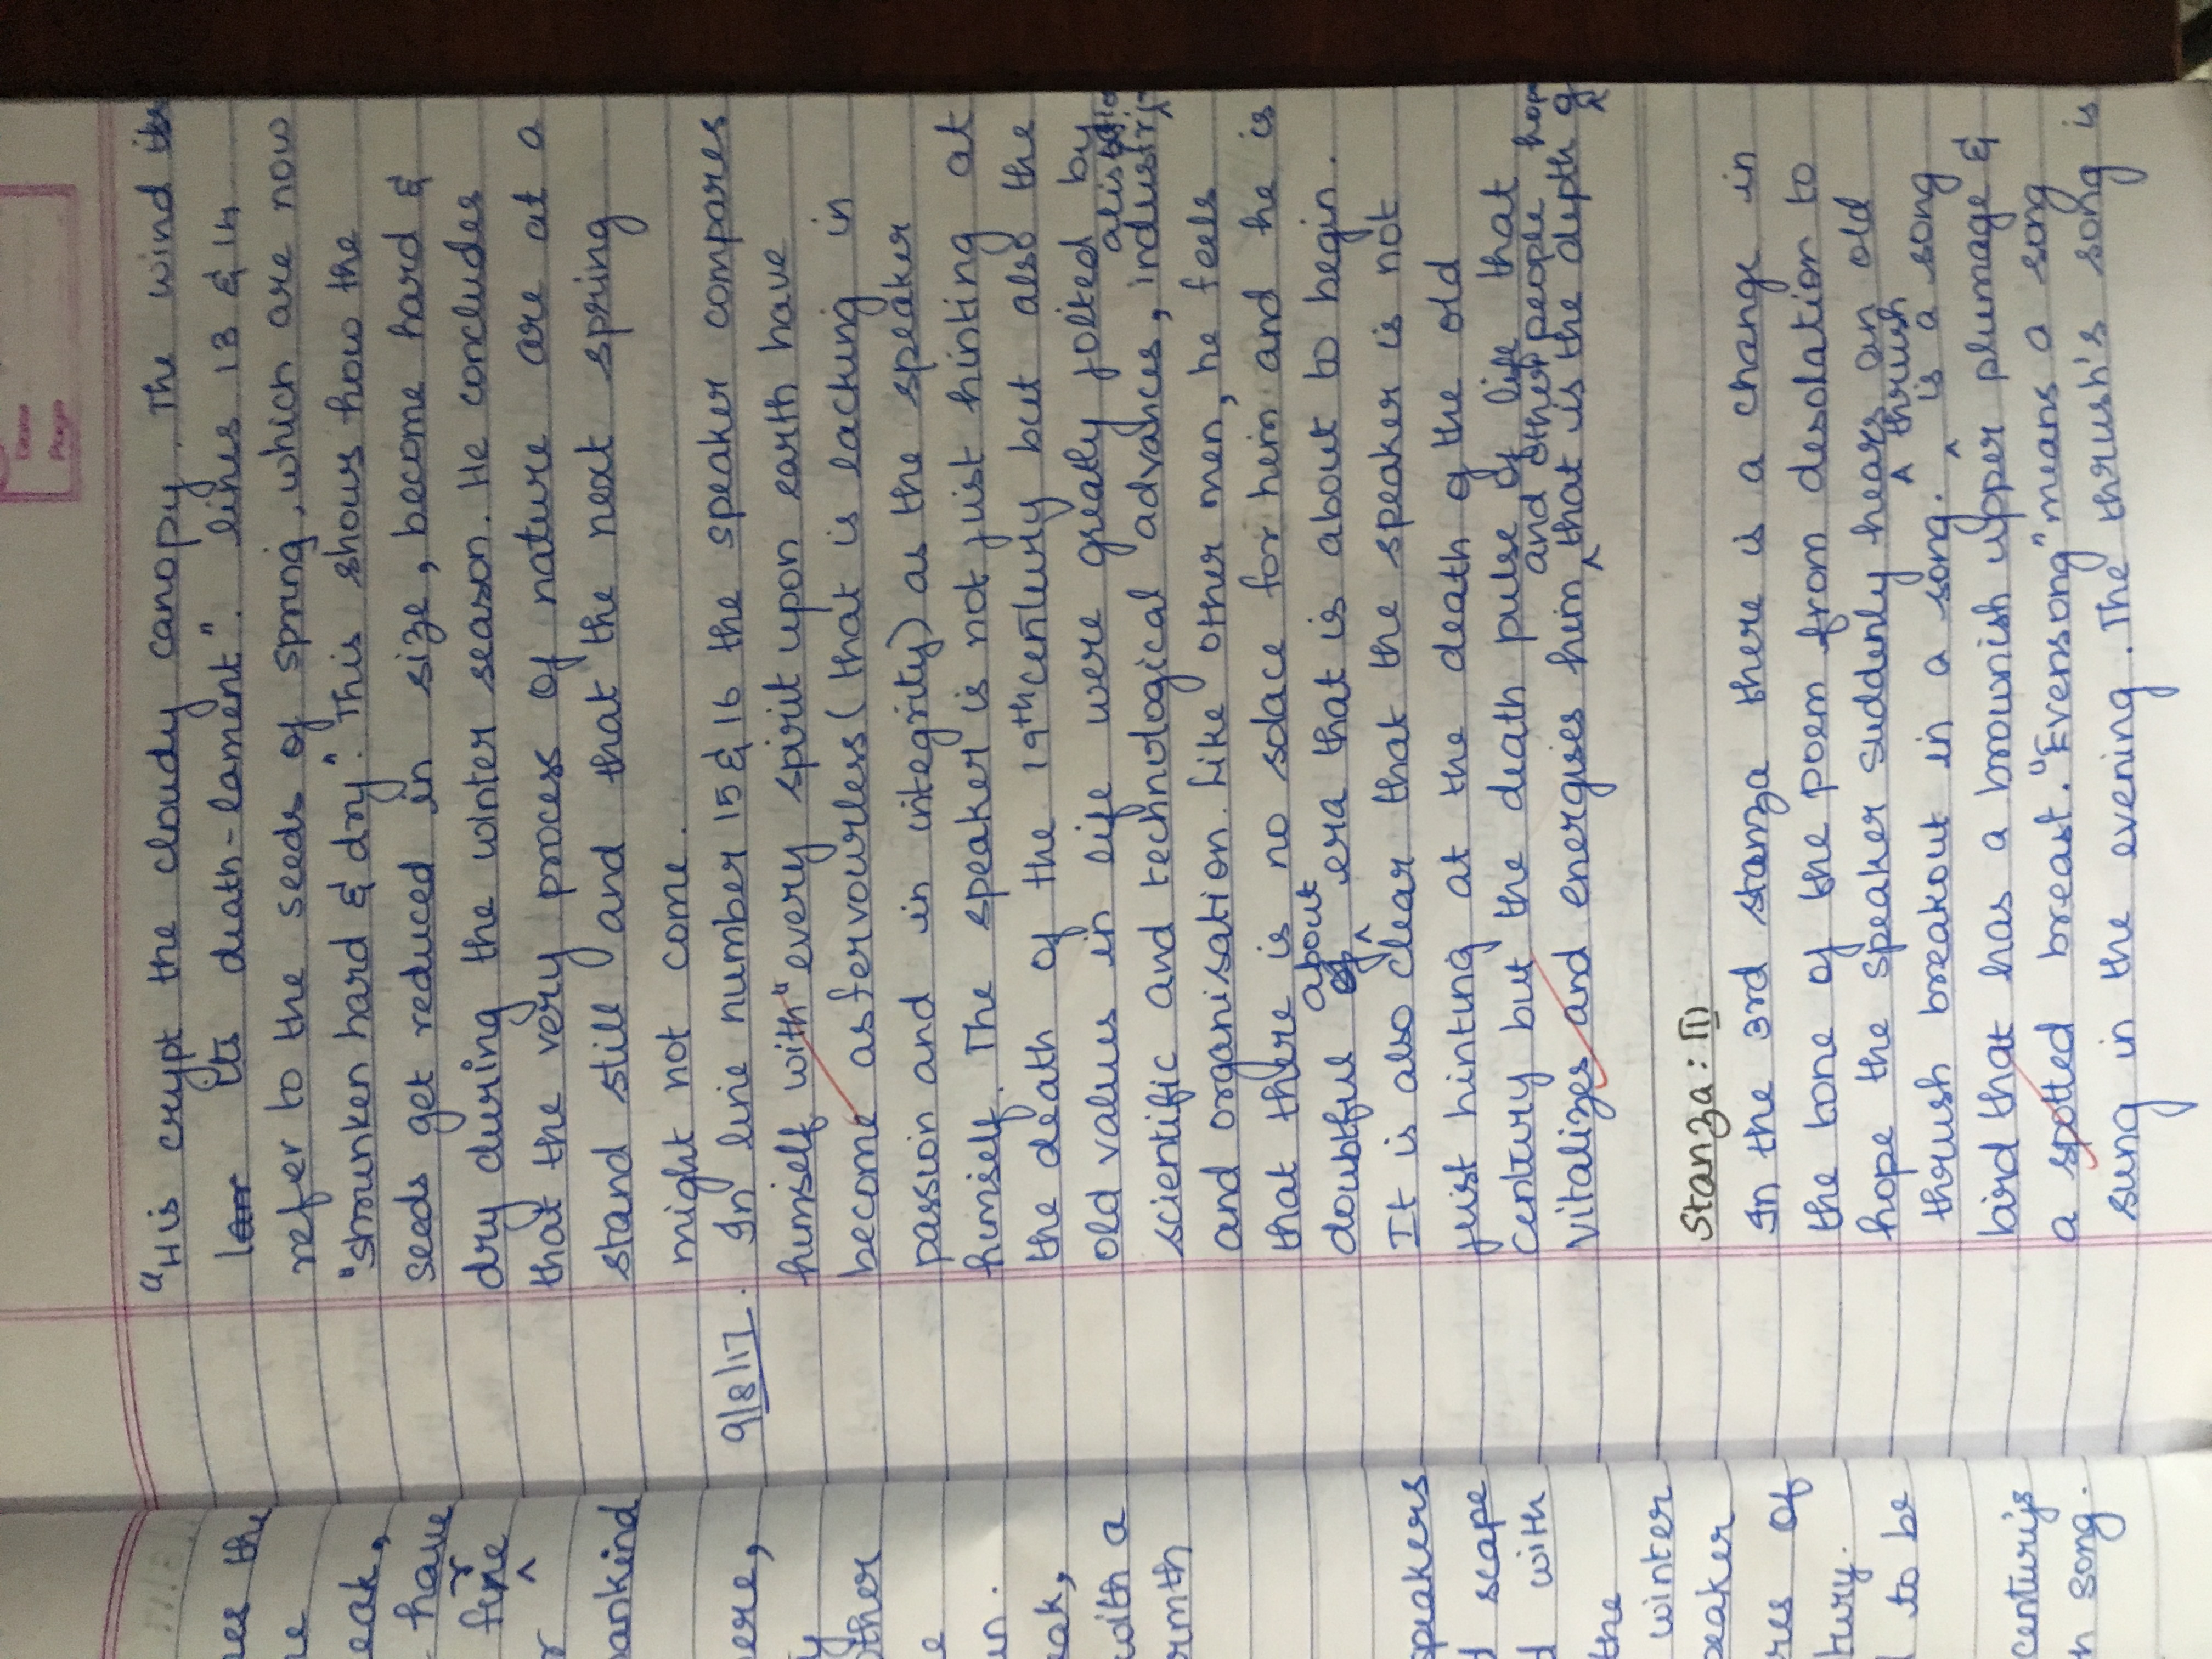 Date
Page
"His crypt the cloudy canopy. The wind its
its death-lament". lines 13 & 14
refer to the seeds of spring, which are now
"shrunken hard & dry". This shows how the
seeds get reduced in size, become hard &
dry during the winter season. He concludes
that the very process of nature are at a
stand still and that the next spring
might not come.
9/8/17. In line number 15 & 16 the speaker compares
himself with "every spirit upon earth have
become as fervourless (that is lacking in
passion and in integrity) as the speaker
himself. The speaker is not just hinting at
the death of the 19th century but also the
old values in life were greatly jolted by
scientific and technological advances, industri
and organisation. Like other men, he feels
that there is no solace for him and he is
doubtful about era that is about to begin.
It is also clear that the speaker is not
just hinting at the death of the old
century but the death pulse of life that
vitalizes and energises him and other people that is the depth of
Stanza: III
In the 3rd stanza there is a change in
the tone of the poem from desolation to
hope the speaker suddenly hears an old
thrush breakout in a song. A thrush is a song
bird that has a brownish upper plumage &
a spotted breast. "Evensong" means a song
sung in the evening. The thrush's song is
the
eak,
have
fine
r
ankind
ere,
y
other
e
eak,
with a
rmth
speakers
scape
with
the
winter
peaker
res of
tury.
to be
century's
song.